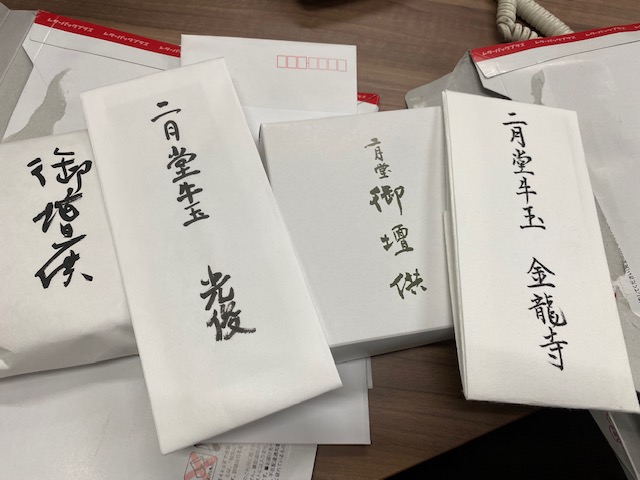 レターパックプラス
レターパックプラス
御壇供
二月堂牛玉
光俊
二月堂
御壇供
二月堂牛玉
金龍寺